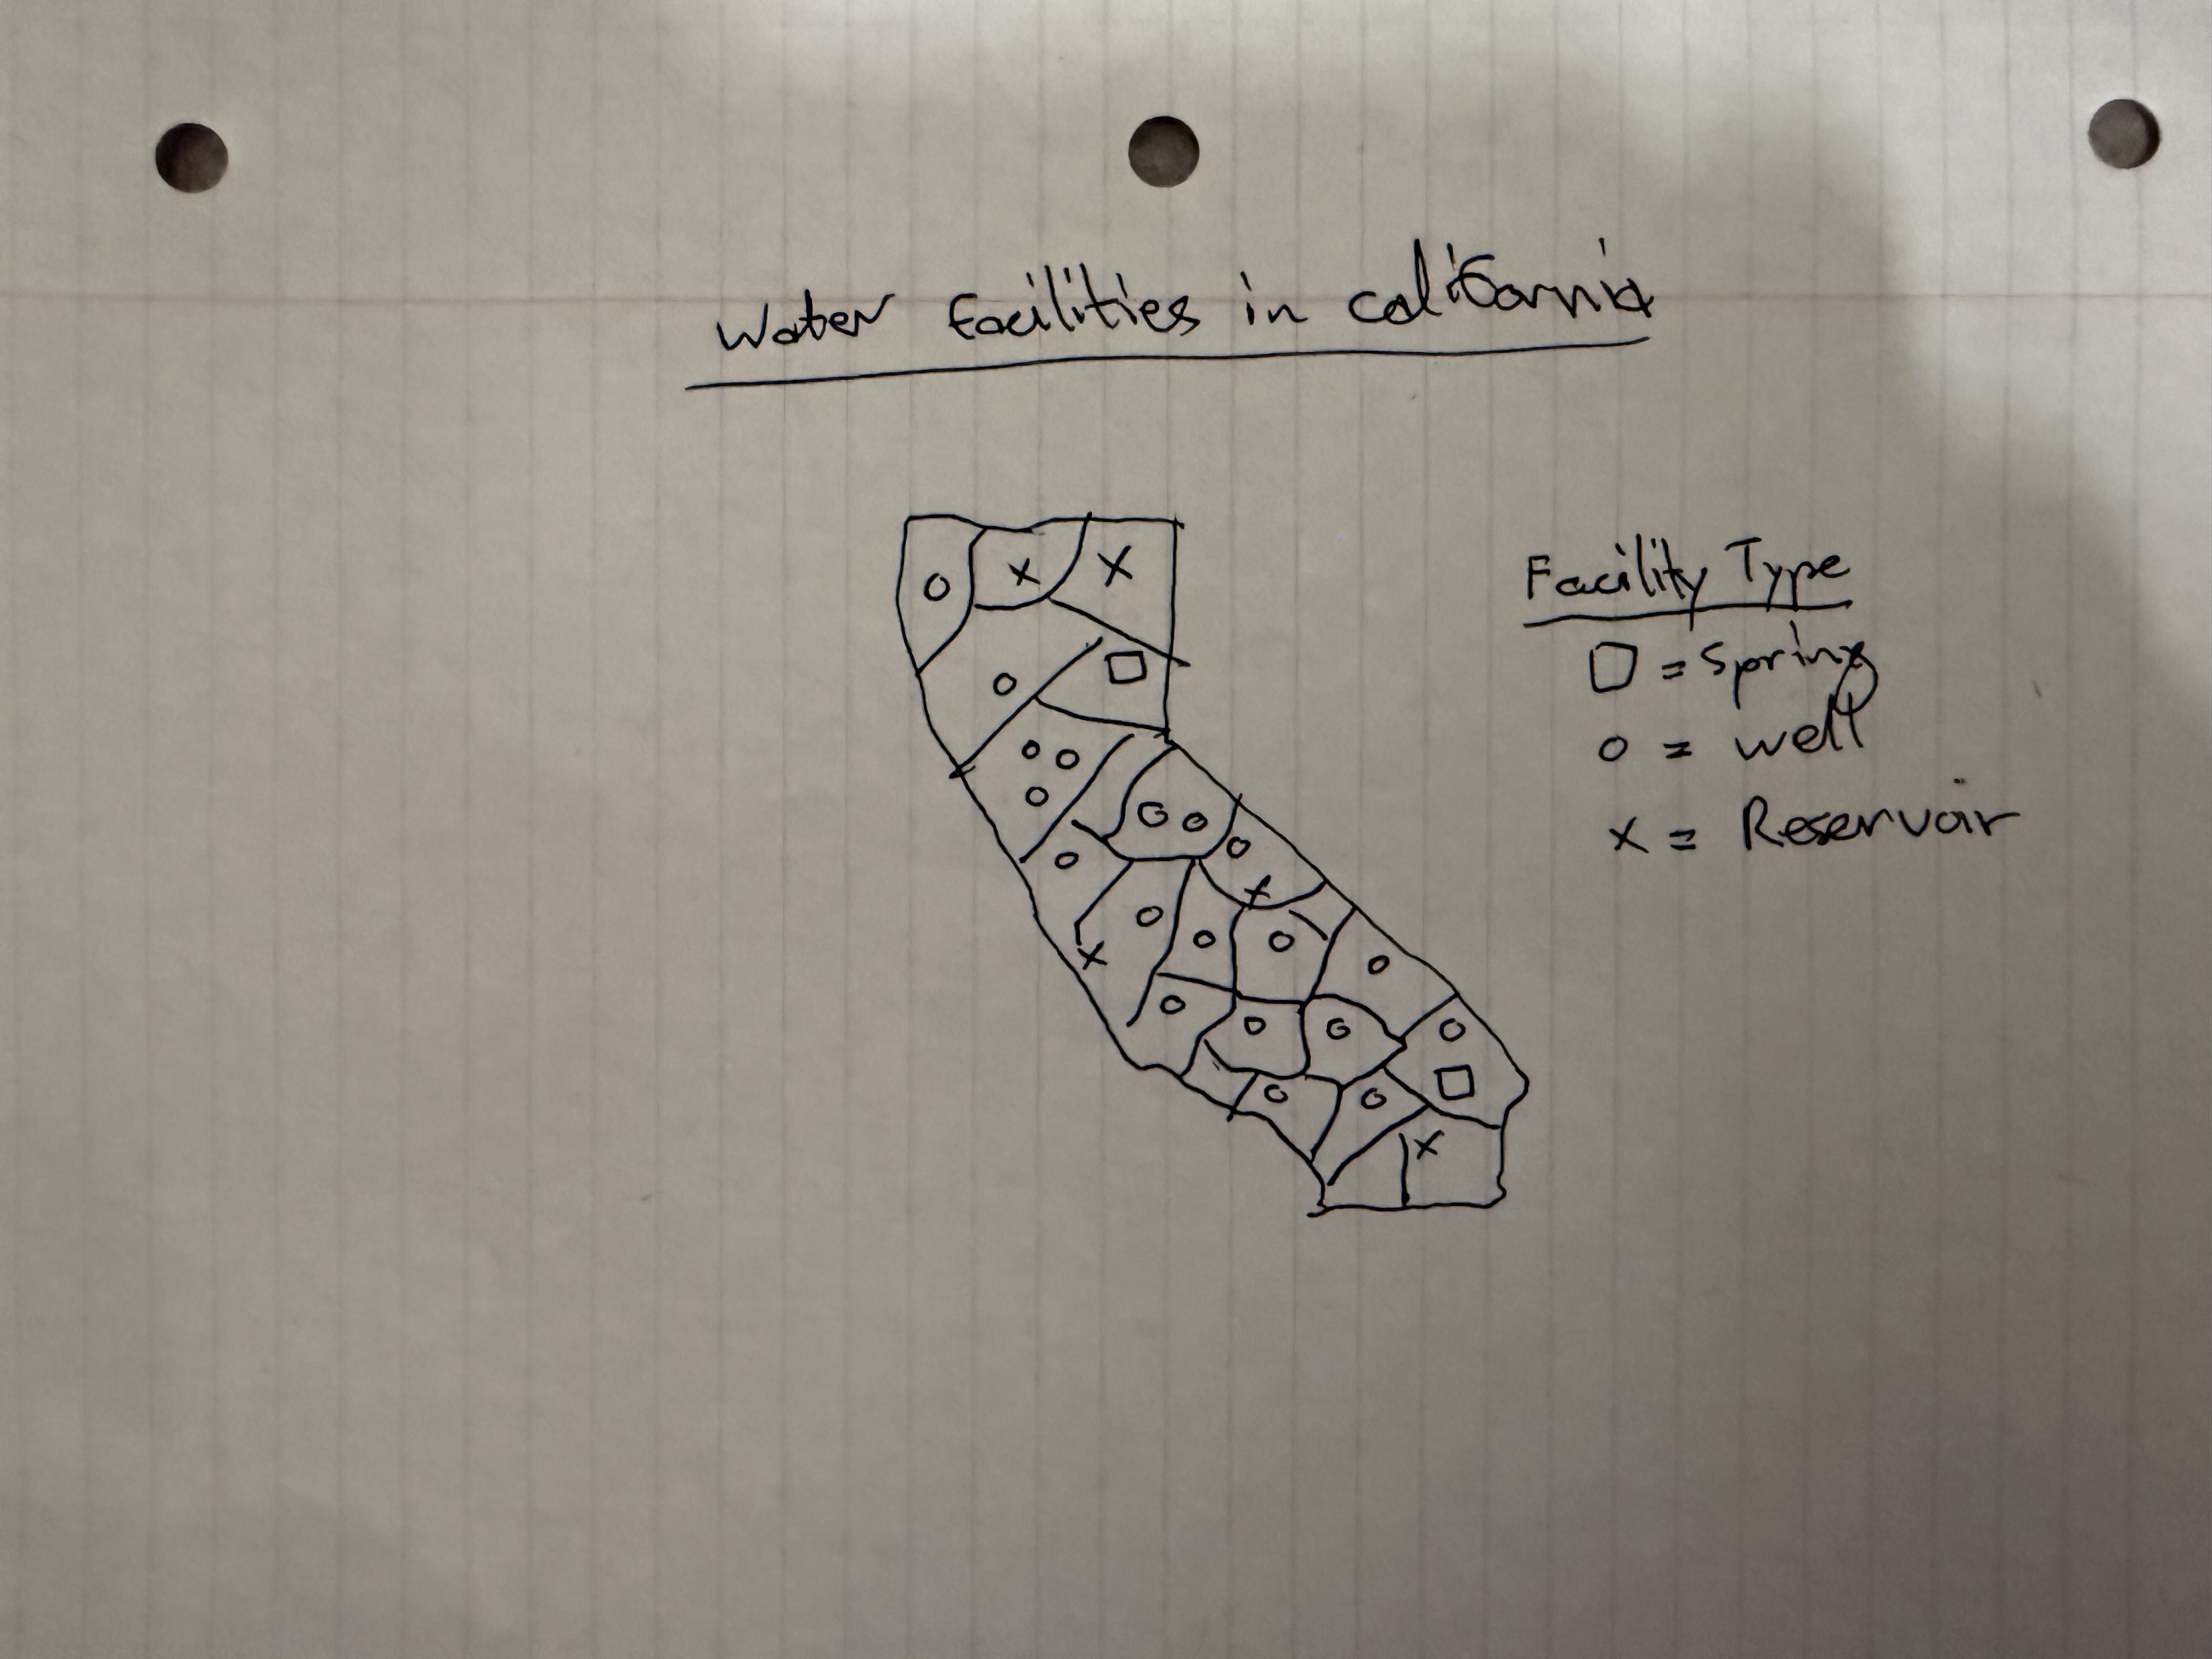 Water facilities in california
Facility Type
□ = Spring
o = well
x = Reservoir